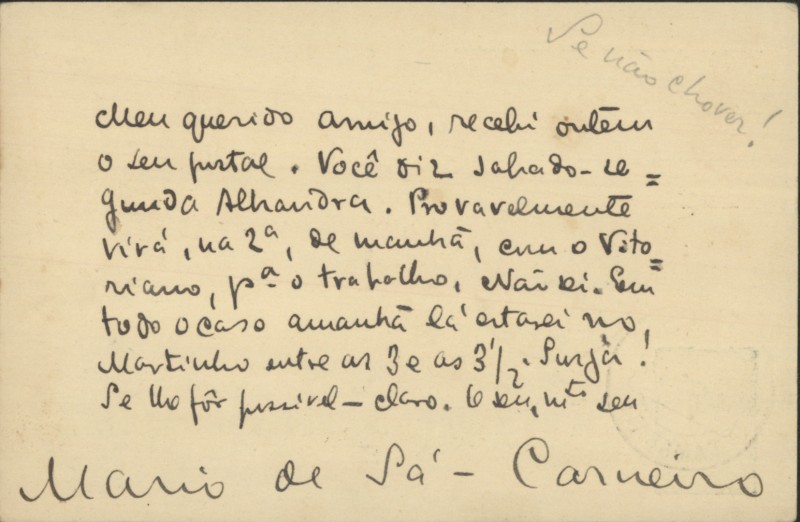 Se não chover!
Meu querido amigo, recebi ontem
o seu postal. Você diz sabado-se=
gunda Alhandra. Provavelmente
virá, na 2ª, de manhã, com o Vito=
riano, pª o trabalho. Não sei. Em
todo o caso amanhã lá estarei no
Martinho entre as 3 e as 3 1/2. Surja!
Se lho fôr possivel – claro. O seu, mto seu
Mario de Sá-Carneiro